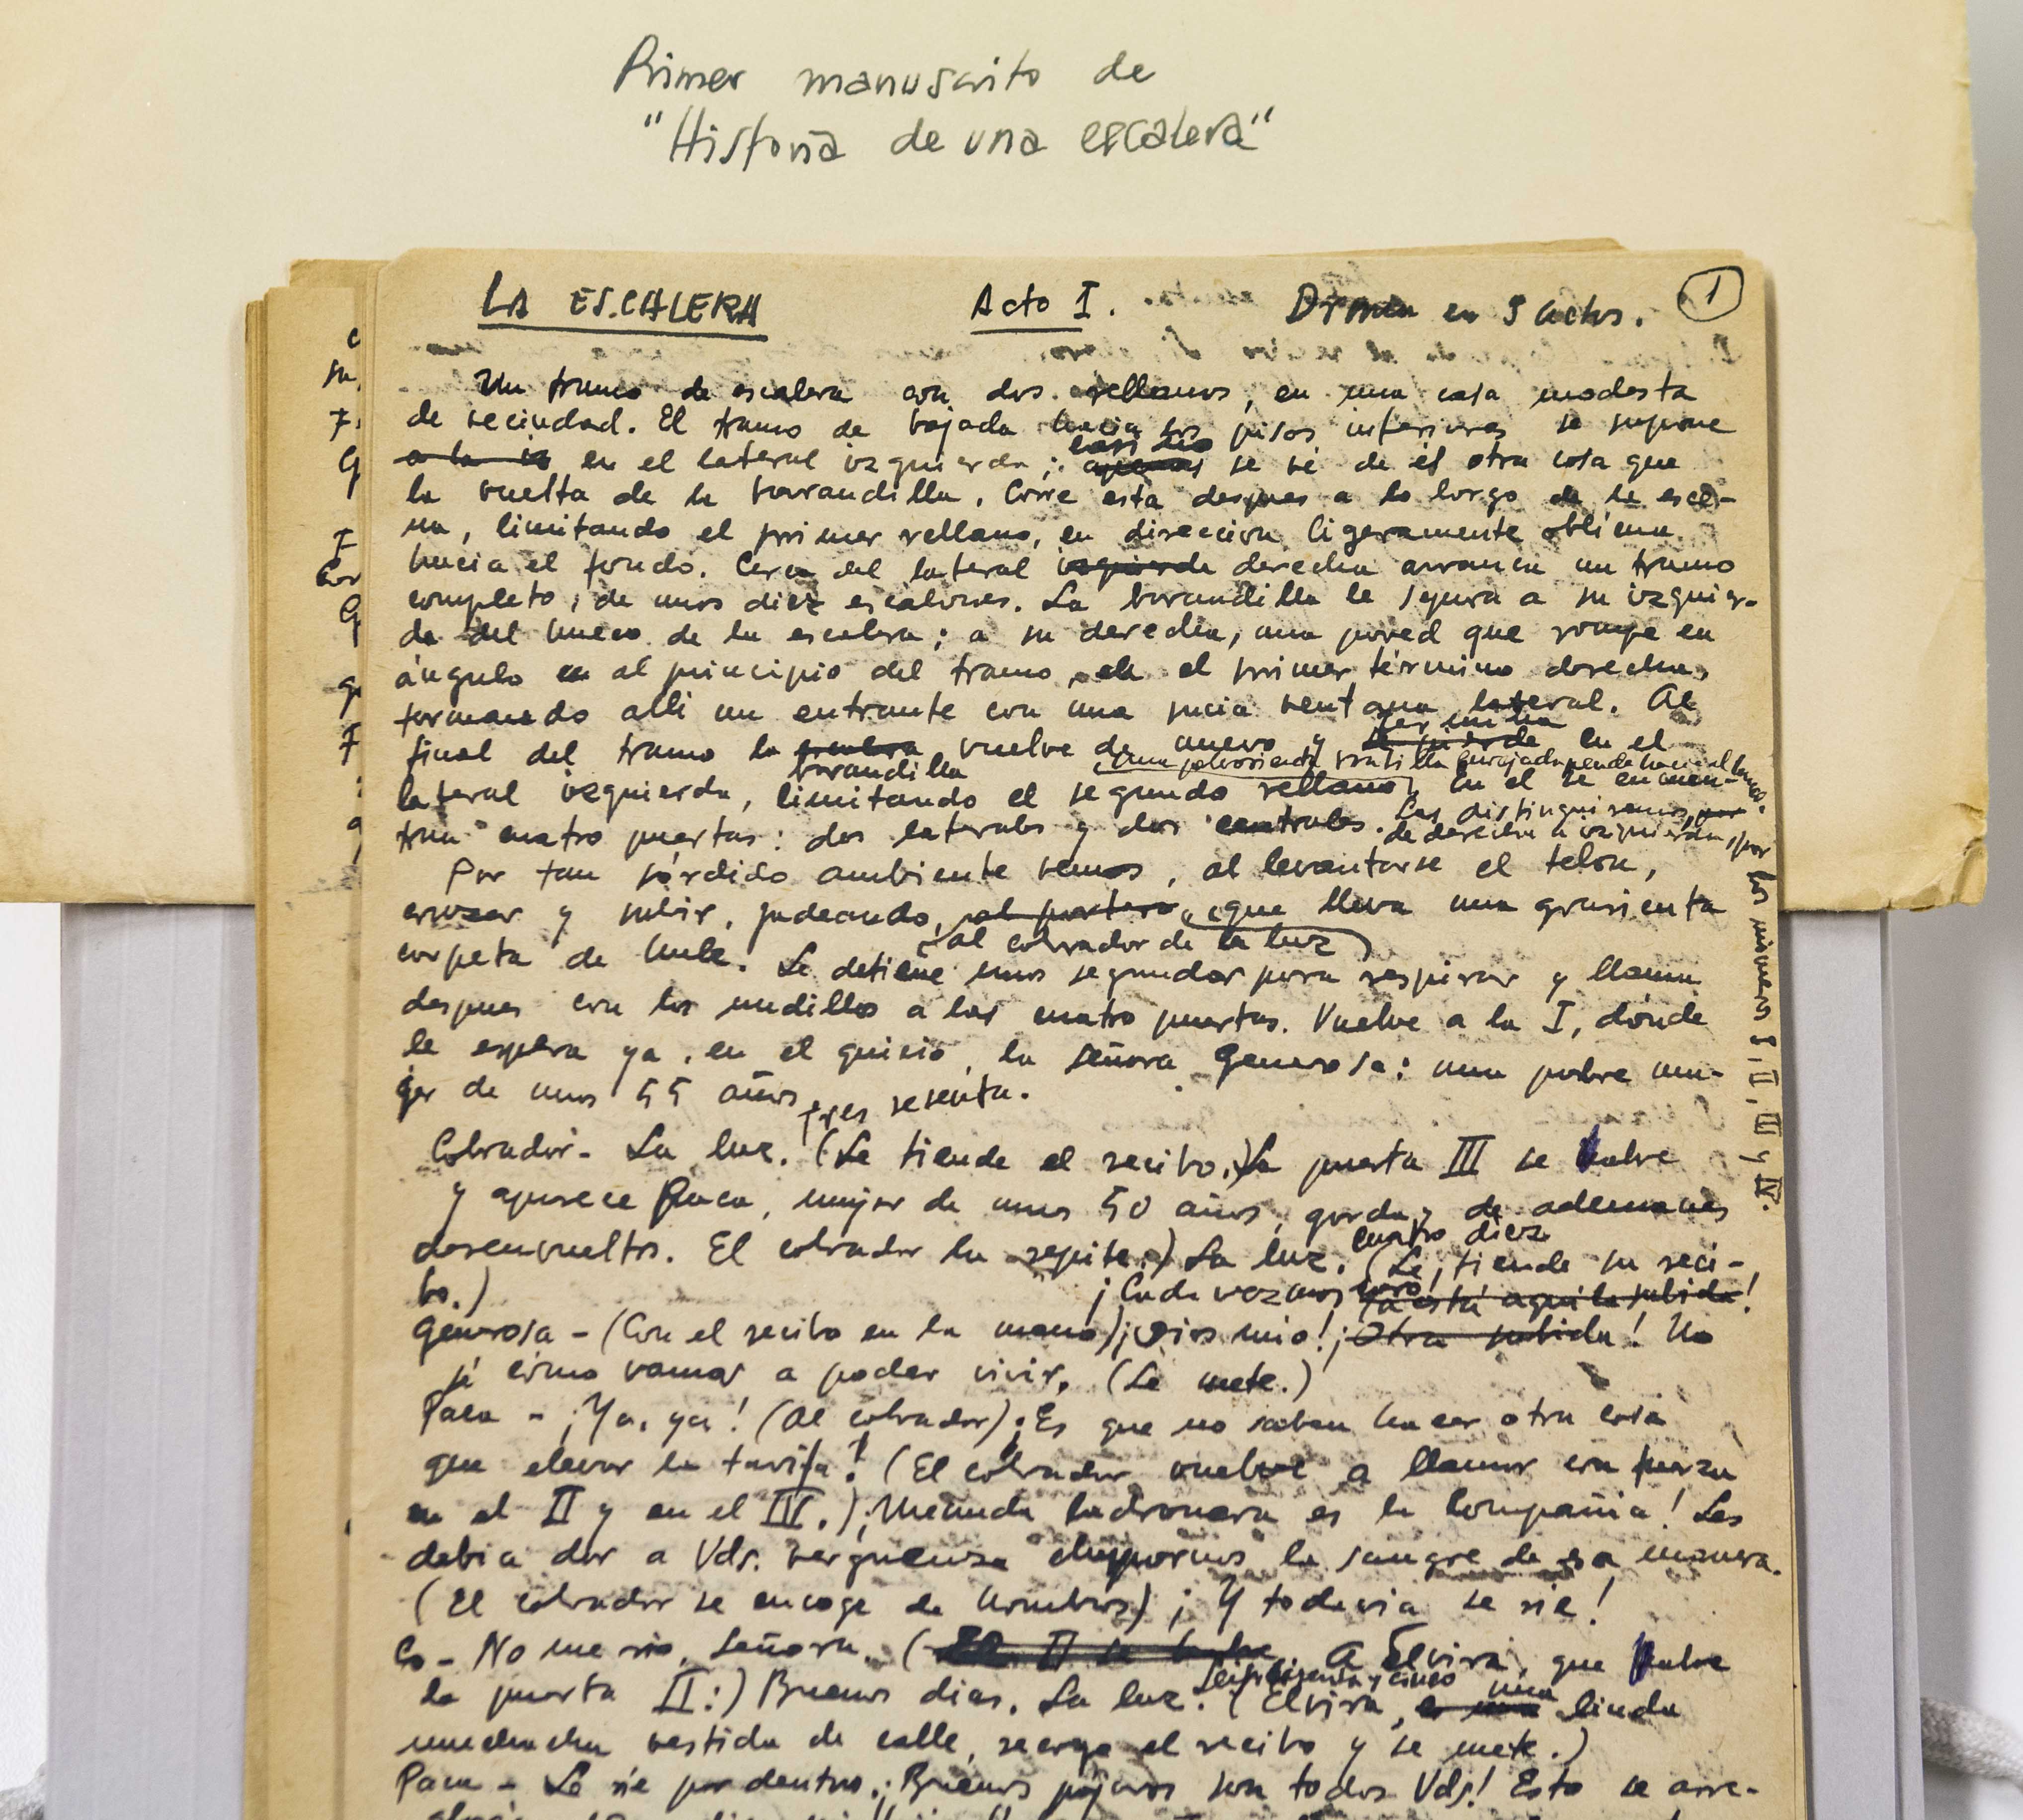 Primer manuscrito de
"Historia de una escalera"
LA ESCALERA Acto I. Drama en 3 actos. 1
Un tramo de escalera con dos rellanos, en una casa modesta
de vecindad. El tramo de bajada hacia los pisos inferiores se supone
a la iz en el lateral izquierdo; casi no apenas se vé de él otra cosa que
la vuelta de la barandilla. Corre esta despues a lo largo de la esce-
na, limitando el primer rellano, en direccion ligeramente oblicua
hacia el fondo. Cerca del lateral izquierdo derecho arranca un tramo
completo, de unos diez escalones. La barandilla le separa a su izquier-
da del hueco de la escalera; a su derecha, una pared que rompe en
ángulo en al principio del tramo, en el primer término derecha,
formando alli un entrante con una sucia ventana lateral. Al
final del tramo la barandilla vuelve de nuevo y termina se pierde en el
lateral izquierdo, limitando el segundo rellano, En el se encuen-
una polvorienta bombilla enrejada pende hacia el hueco.
tran cuatro puertas: dos laterales y dos centrales. Las distinguiremos, por
de derecha a izquierda, por
los números I, II, III y IV.
Por tan sórdido ambiente vemos, al levantarse el telon,
cruzar y subir, jadeando, al portero, que lleva una grasienta
al cobrador de la luz
carpeta de hule. Se detiene unos segundos para respirar y llama
despues con los nudillos a las cuatro puertas. Vuelve a la I, dónde
le espera ya, en el quicio, la señora Generosa: una pobre mu-
jer de unos 55 años
tres sesenta.
Cobrador- La luz. (Le tiende el recibo.) La puerta III se abre
y aparece Paca, mujer de unos 50 años, gorda y de ademanes
desenvueltos. El cobrador la repite:) La luz. cuatro diez (Le tiende su reci-
bo.)
¡Cada vez mas caro! Ya está aquí la subida!
Generosa - (Con el recibo en la mano) ¡Dios mio! ¡Otra subida! No
sé cómo vamos a poder vivir. (Se mete.)
Paca - ¡Ya, ya! (Al cobrador) ¡Es que no saben hacer otra cosa
que elevar la tarifa! (El cobrador vuelve a llamar con fuerza
en el II y en el IV.) ¡Menuda ladronera es la Compañia! Les
debia dar a Vds. verguenza chuparnos la sangre de esa manera.
(El cobrador se encoge de hombros) ¡Y todavia se rie!
Co - No me rio, señora. (El II se abre A Elvira, que abre
la puerta II:) Buenos dias. La luz. Seis sesenta y cinco (Elvira, es una una linda
muchacha vestida de calle, recoge el recibo y se mete.)
Paca - Se rie por dentro. ¡Buenos pájaros son todos Vds! Esto se arre-